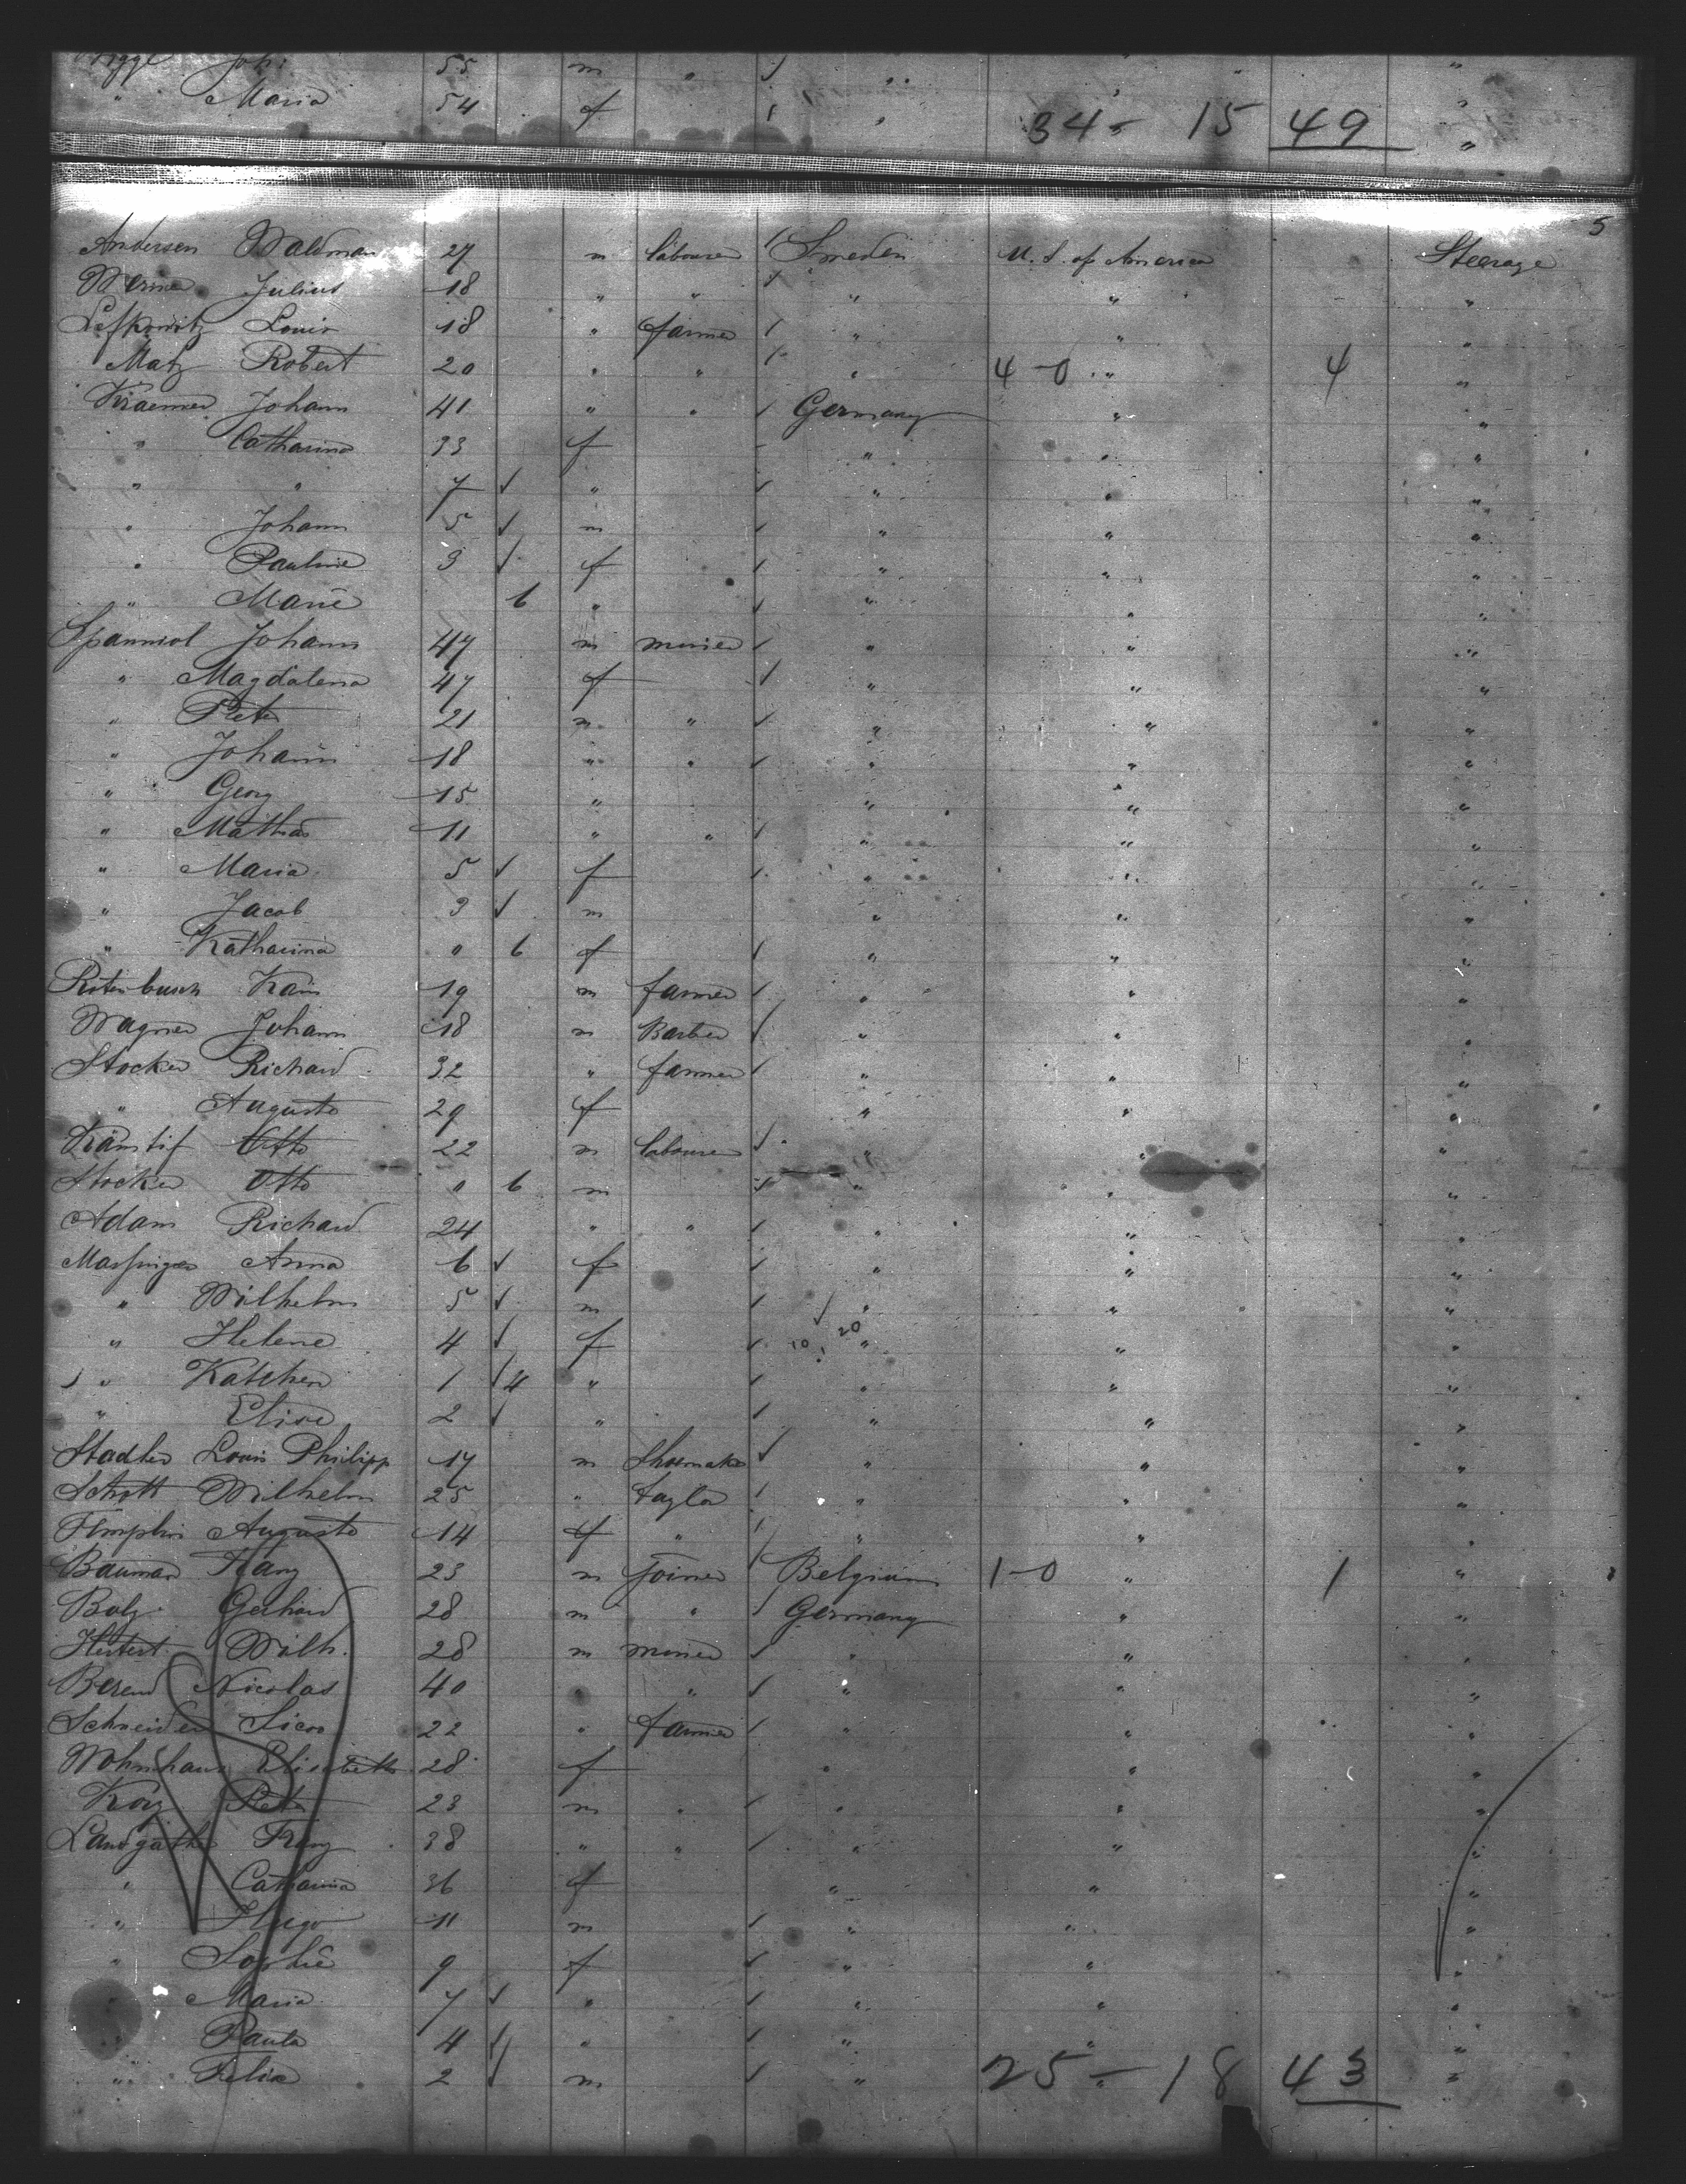 Joh. 55 m " "
" Maria 54 f " 34 - 15 49 "
5
Andersen Waldman 27 m labourer Sweden U. S. of America Steerage
Werner Julius 18 " " " " "
Lefkowitz Louis 18 " farmer " " "
Matz Robert 20 " " " 4-0 " 4 "
Kraemer Johann 41 " " Germany " "
" Catharina 33 f " " "
" " 7 " " " "
" Johann 5 m " " "
" Pauline 3 f " " "
" Marie 6 " " " "
Spanniol Johann 47 m miner " " "
" Magdalena 47 f " " "
" Peter 21 m " " " "
" Johann 18 " " " " "
" Georg 15 " " " "
" Mathias 11 " " " " "
" Maria 5 f " " "
" Jacob 3 m " " "
" Katharina " 6 f " " "
19 m farmer " " "
Wagner Johann 18 m Barber " " "
Stocker Richard 32 " farmer " " "
" Auguste 29 f " " "
Otto 22 m labourer " " "
Stocker Otto " 6 m " " "
Adam Richard 24 " " " " "
Massinger Anna 6 f " " "
" Wilhelm 5 m " " "
" Helene 4 f 10 20 " " "
" Katchen 1 4 " " " "
" Elise 2 " " " "
Stadler Louis Philipp 17 m Shoemaker " " "
Schott Wilhelm 25 " taylor " " "
Templin Auguste 14 f " " " "
Bauman Franz 23 m joiner Belgium 1-0 " 1 "
Bolz Gerhard 28 m " Germany " "
Herbert Wilh. 28 m miner " " "
Berend Nicolas 40 " " " " "
Schneider 22 " farmer " " "
Elisabeth 28 f " " "
Peter 23 m " " " "
Landgather Franz 38 " " " " "
" Catharina 36 f " " "
" Hugo 11 m " " "
" Sophie 9 f " " "
" Maria 7 " " " "
" Paula 4 " " " "
" Felix 2 m " 25 - 18 43 "